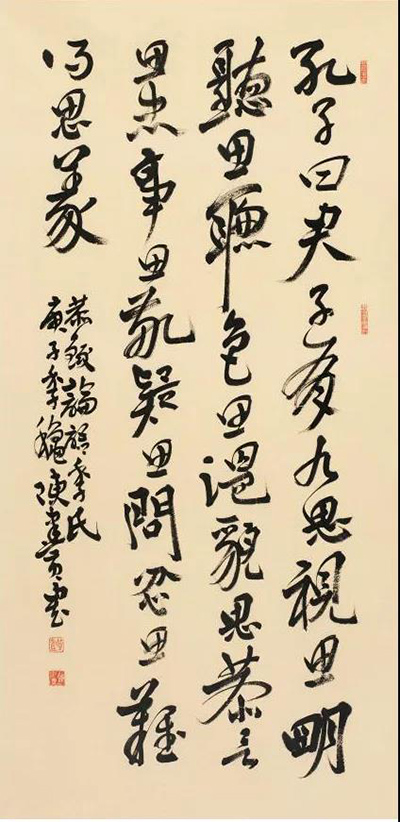 孔子曰君子有九思視思明
聽思聰色思溫貌思恭言
思忠事思敬疑思問忿思難
得思義
恭錄論語季氏
庚子季穐陳建貢書